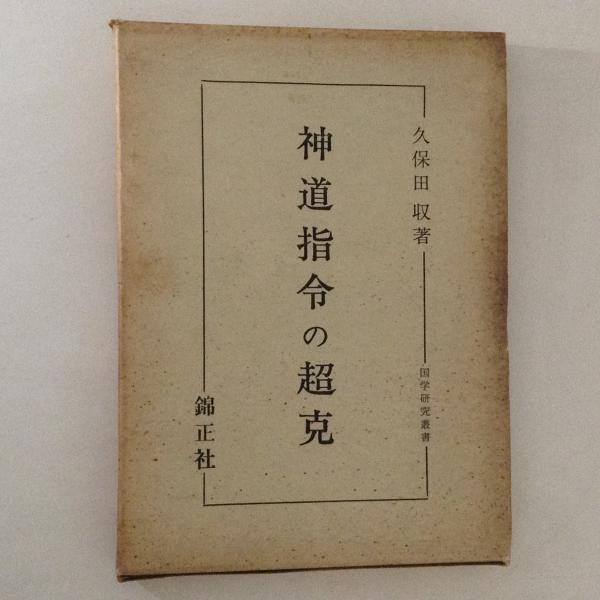 久保田 収著
国学研究叢書
神道指令の超克
錦正社